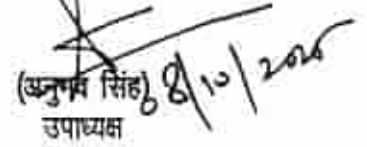 (अनुभव सिंह) 8/10/2025
उपाध्यक्ष